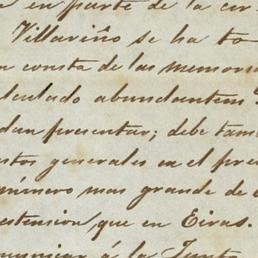 en parte de la cir
Villariño se ha to
consta de las memoria
lculado abundantem
dan presentar; debe tam
stos generales en el pre
número mas grande de
estension, que en Eiras.
municar á la Junta